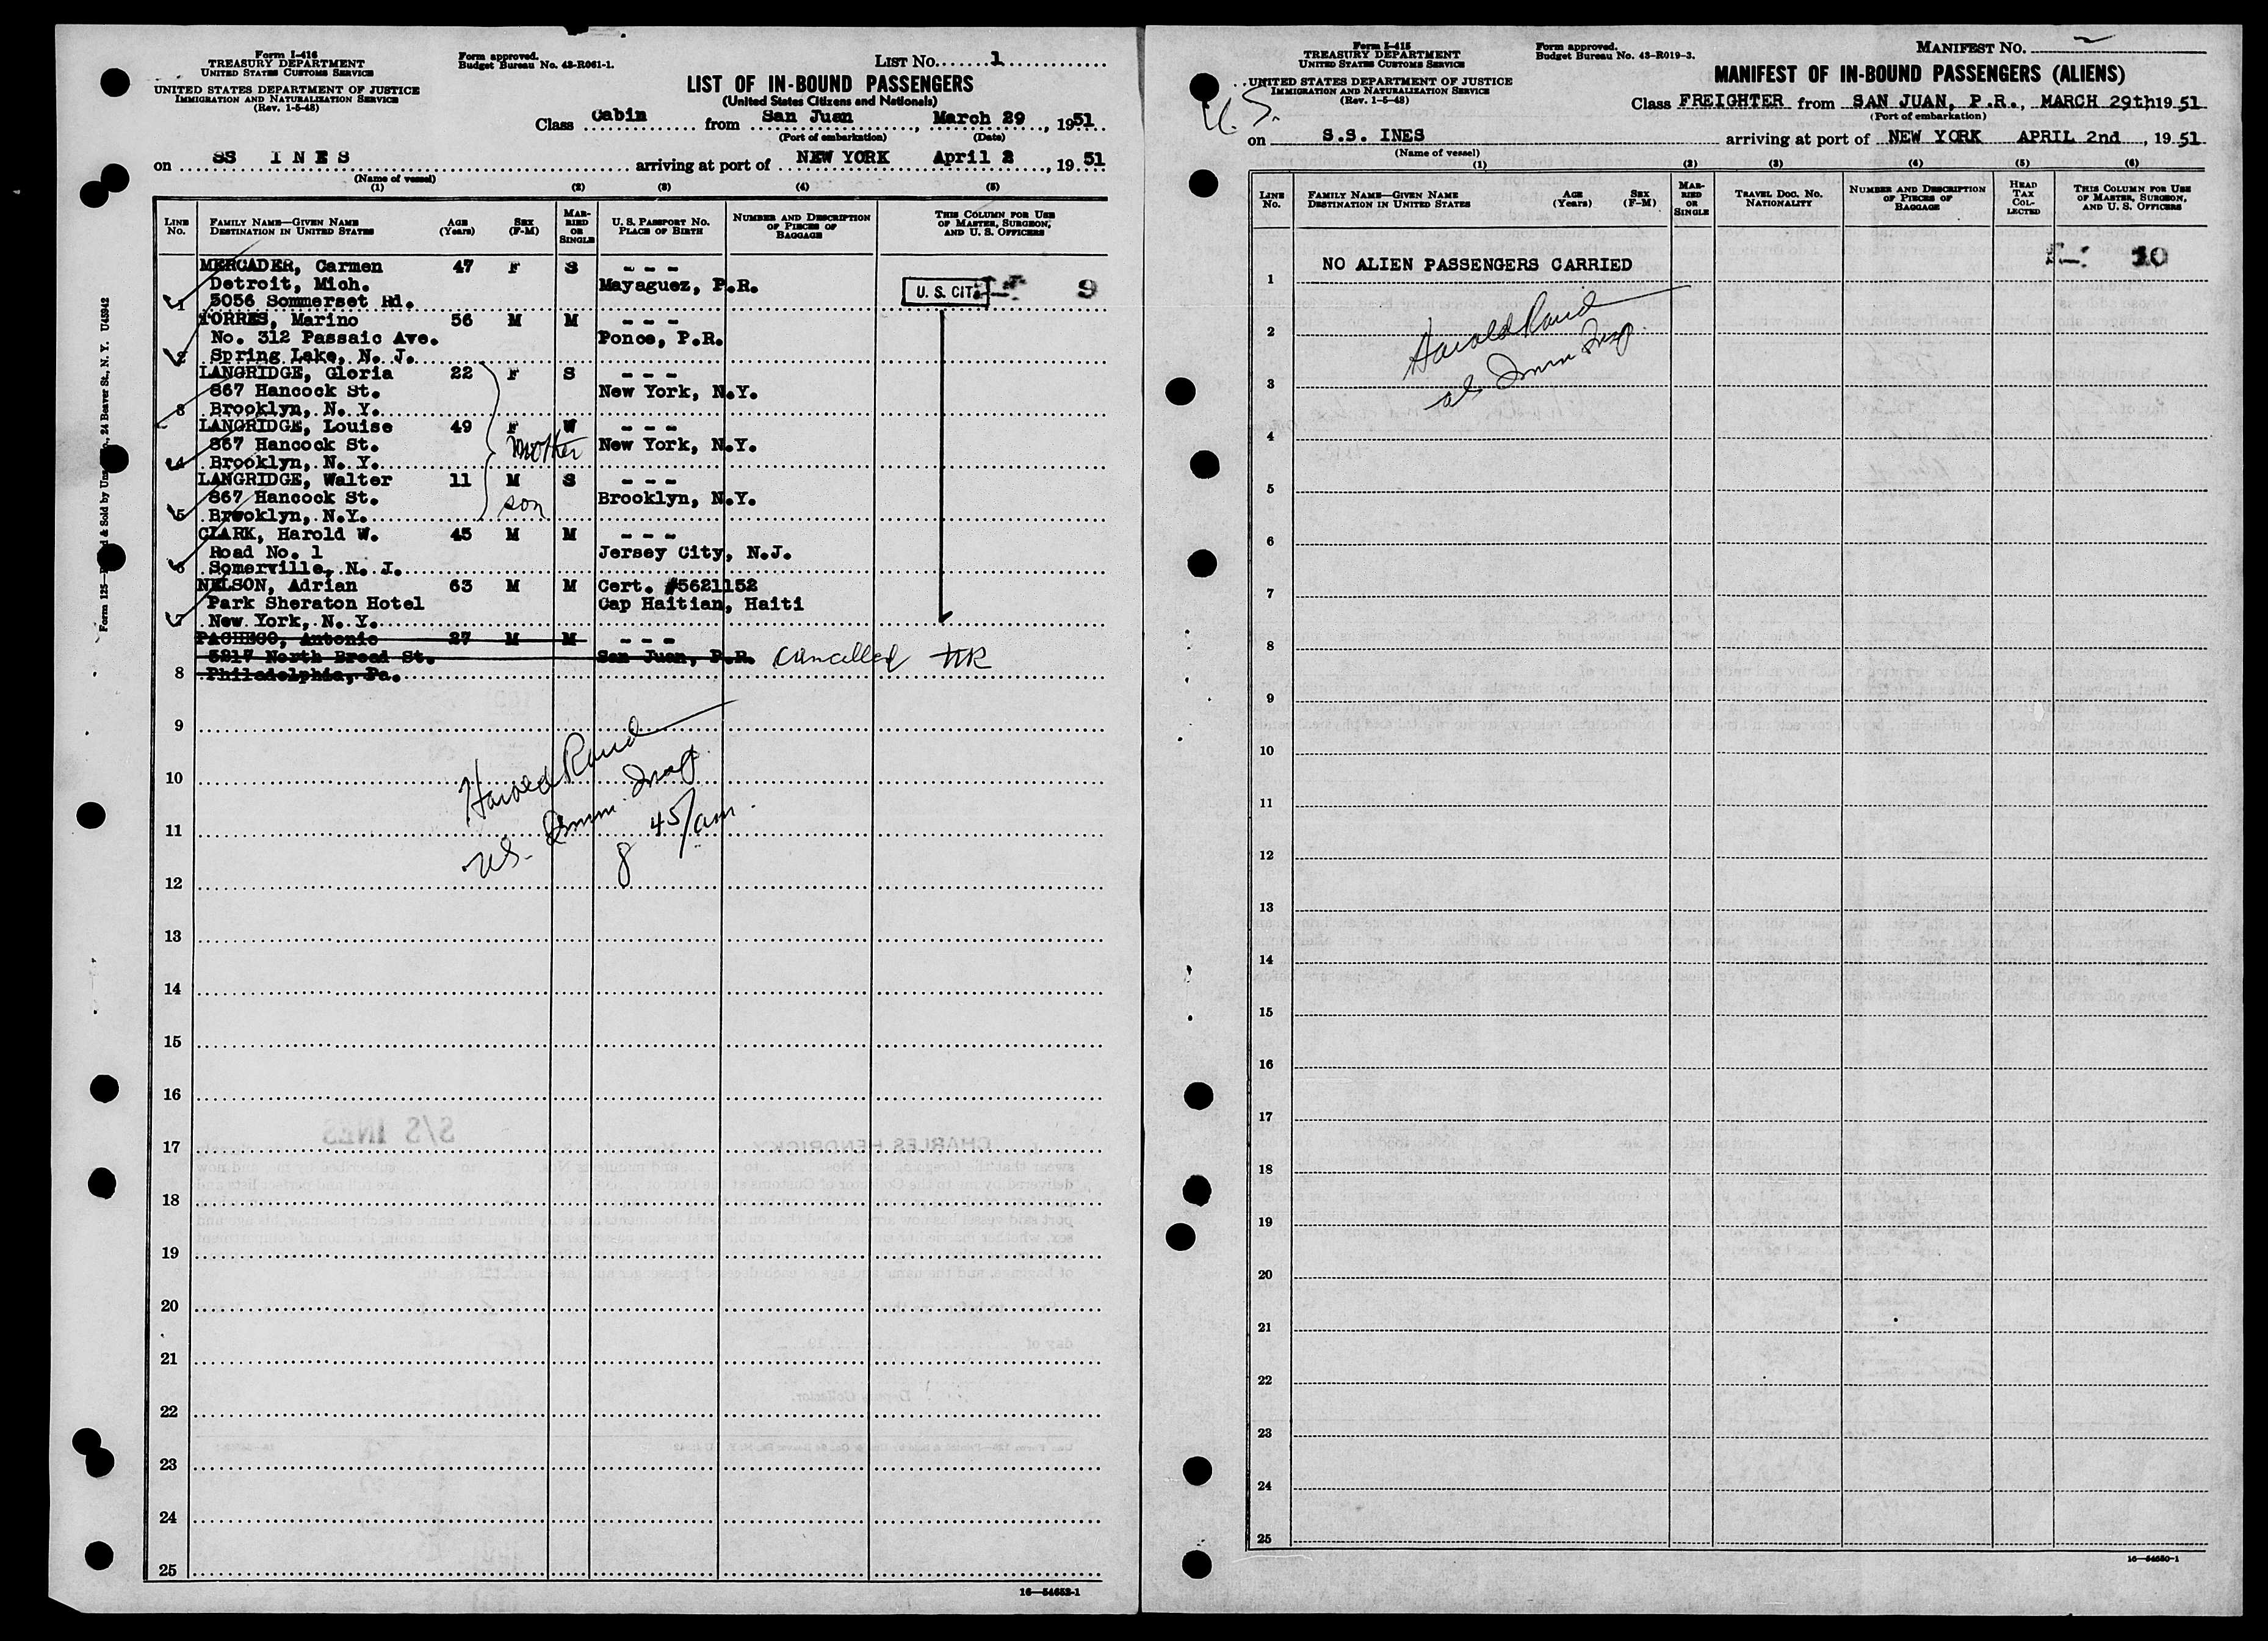 Form I-416
TREASURY DEPARTMENT
UNITED STATES CUSTOMS SERVICE
UNITED STATES DEPARTMENT OF JUSTICE
IMMIGRATION AND NATURALIZATION SERVICE
(Rev. 1-5-48)
Form approved.
Budget Bureau No. 43-R061-1.
LIST No. 1
LIST OF IN-BOUND PASSENGERS
(United States Citizens and Nationals)
Class Cabin from San Juan, March 29, 1951
(Port of embarkation) (Date)
on SS INES arriving at port of NEW YORK April 2, 1951
(Name of vessel)
(1) (2) (3) (4) (5)
LINE No. FAMILY NAME—GIVEN NAME DESTINATION IN UNITED STATES AGE (Years) SEX (F-M) MARRIED OR SINGLE U. S. PASSPORT No. PLACE OF BIRTH NUMBER AND DESCRIPTION OF PIECES OF BAGGAGE THIS COLUMN FOR USE OF MASTER, SURGEON, AND U. S. OFFICERS
MERCADER, Carmen 47 F S - - -
Detroit, Mich. Mayaguez, P.R. U. S. CIT 9
1 5056 Sommerset Rd.
TORRES, Marino 56 M M - - -
No. 312 Passaic Ave. Ponce, P.R.
2 Spring Lake, N. J.
LANGRIDGE, Gloria 22 F S - - -
867 Hancock St. New York, N.Y.
3 Brooklyn, N. Y.
LANGRIDGE, Louise 49 F W - - -
867 Hancock St. mother New York, N.Y.
4 Brooklyn, N. Y.
LANGRIDGE, Walter 11 M S - - -
867 Hancock St. son Brooklyn, N.Y.
5 Brooklyn, N.Y.
CLARK, Harold W. 45 M M - - -
Road No. 1 Jersey City, N.J.
6 Somerville, N. J.
NELSON, Adrian 63 M M Cert. #5621152
Park Sheraton Hotel Cap Haitian, Haiti
7 New York, N. Y.
PACHECO, Antonio 27 M M - - -
5217 North Broad St. San Juan, P.R. Cancelled HR
8 Philadelphia, Pa.
9
10
11
12
13
14
15
16
17
18
19
20
21
22
23
24
25
Harold Rand
US. Imm. Insp
8 45/am.
16—54652-1
Form I-415
TREASURY DEPARTMENT
UNITED STATES CUSTOMS SERVICE
UNITED STATES DEPARTMENT OF JUSTICE
IMMIGRATION AND NATURALIZATION SERVICE
(Rev. 1-5-48)
U.S.
Form approved.
Budget Bureau No. 43-R019-3.
MANIFEST No.
MANIFEST OF IN-BOUND PASSENGERS (ALIENS)
Class FREIGHTER from SAN JUAN, P.R., MARCH 29th 1951
(Port of embarkation)
on S.S. INES arriving at port of NEW YORK APRIL 2nd, 1951
(Name of vessel)
(1) (2) (3) (4) (5) (6)
LINE No. FAMILY NAME—GIVEN NAME DESTINATION IN UNITED STATES AGE (Years) SEX (F-M) MARRIED OR SINGLE TRAVEL DOC. No. NATIONALITY NUMBER AND DESCRIPTION OF PIECES OF BAGGAGE HEAD TAX COLLECTED THIS COLUMN FOR USE OF MASTER, SURGEON, AND U. S. OFFICERS
1 NO ALIEN PASSENGERS CARRIED 10
Harold Rand
Imm Insp.
2
3
4
5
6
7
8
9
10
11
12
13
14
15
16
17
18
19
20
21
22
23
24
25
16—54650-1